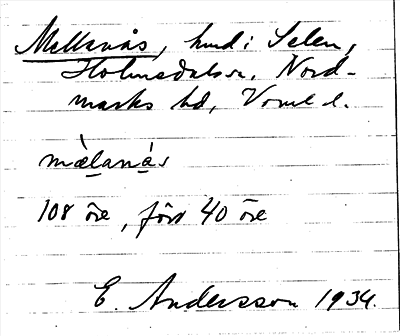 Mellanäs, hmd i Lelen,
Holmedals sn, Nord-
marks hd, Vrml l.
mèlanás
108 öre, förr 40 öre
E. Andersson 1934.